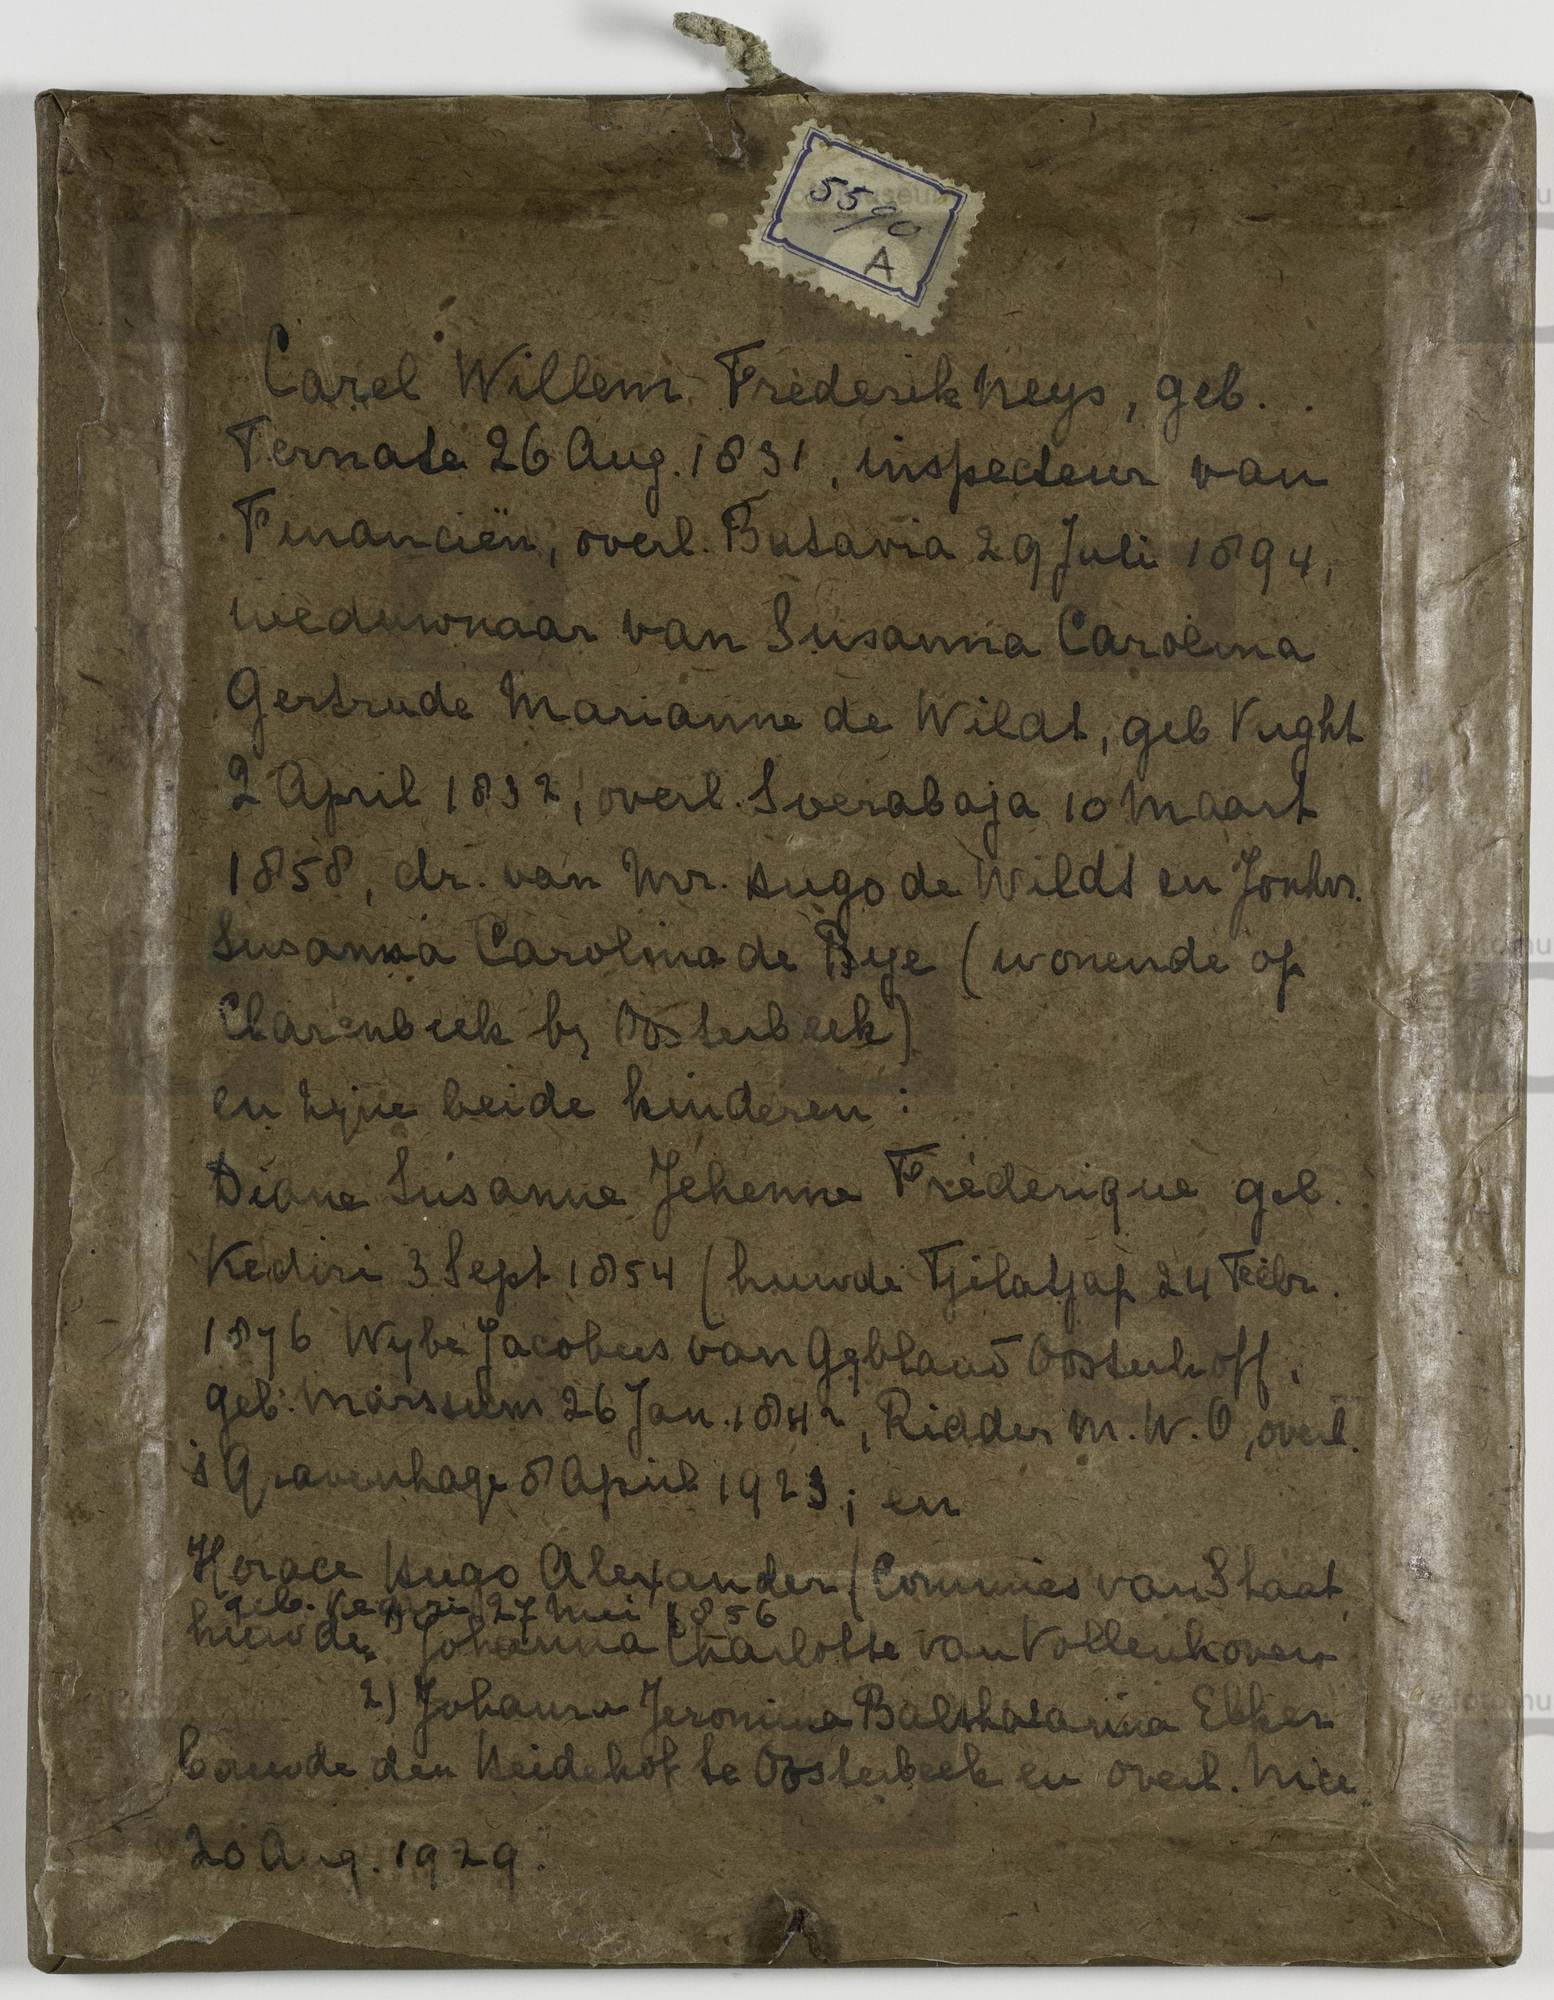 5590
A
Carel Willem Frederik Neys, geb.
Ternate 26 Aug. 1831, inspecteur van
Financiën, overl. Batavia 29 Juli 1894,
weduwnaar van Susanna Carolina
Gertrude Marianne de Wildt, geb Vught
2 April 1832, overl. Soerabaja 10 Maart
1858, dr. van Mr. Hugo de Wildt en Jonkvr.
Susanna Carolina de Bye (wonende op
Clarenbeek by Oosterbeek)
en zyne beide kinderen :
Diane Susanne Jehenne Fréderique geb.
Kediri 3 Sept 1854 (huwde Tjilatjap 24 Febr.
1876 Wybe Jacobus van Gybland Oosterhoff,
geb. Marssum 26 Jan. 1842, Ridder M.W.O, overl.
's Gravenhage 8 April 1923; en
Horace Hugo Alexander (Commies van Staat,
geb. Kediri 27 Mei 1856
huwde 1) Johanna Charlotte van Vollenhoven
2) Johanna Jeronima Balthasarina Ekker
bouwde den Heidehof te Oosterbeek en overl. Nice
20 Aug. 1929.